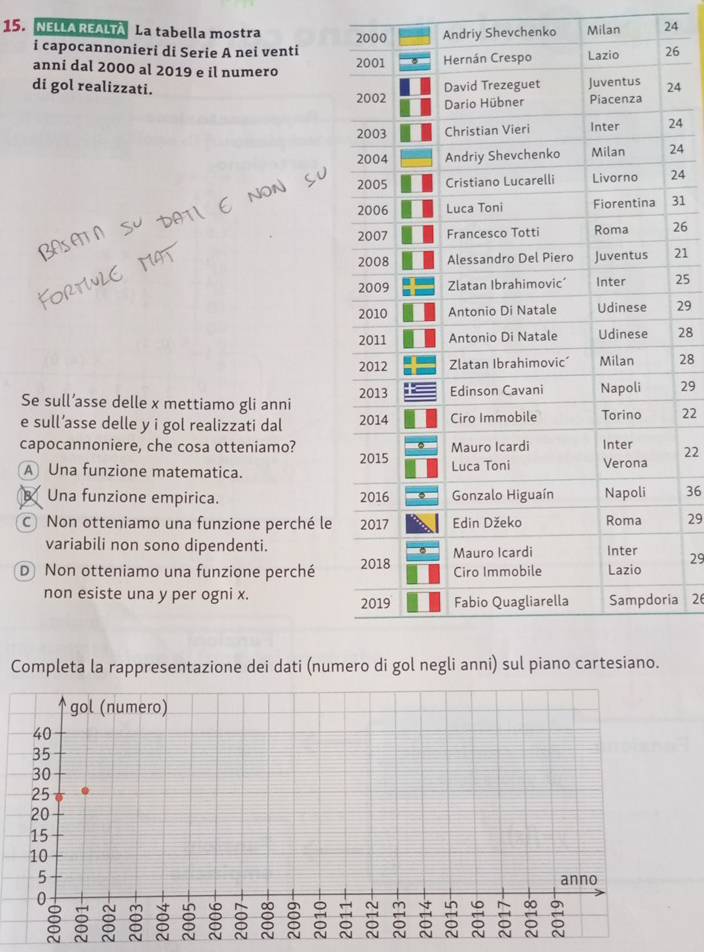 15. NELLA REALTÀ La tabella mostra
i capocannonieri di Serie A nei venti
anni dal 2000 al 2019 e il numero
di gol realizzati.
BASATA SU DATI E NON SU
FORMULE MAT
2000 Andriy Shevchenko Milan 24
2001 Hernán Crespo Lazio 26
2002 David Trezeguet Juventus 24
Dario Hübner Piacenza
2003 Christian Vieri Inter 24
2004 Andriy Shevchenko Milan 24
2005 Cristiano Lucarelli Livorno 24
2006 Luca Toni Fiorentina 31
2007 Francesco Totti Roma 26
2008 Alessandro Del Piero Juventus 21
2009 Zlatan Ibrahimovic´ Inter 25
2010 Antonio Di Natale Udinese 29
2011 Antonio Di Natale Udinese 28
2012 Zlatan Ibrahimovic´ Milan 28
2013 Edinson Cavani Napoli 29
2014 Ciro Immobile Torino 22
2015 Mauro Icardi Inter 22
Luca Toni Verona
2016 Gonzalo Higuaín Napoli 36
2017 Edin Džeko Roma 29
2018 Mauro Icardi Inter 29
Ciro Immobile Lazio
2019 Fabio Quagliarella Sampdoria 26
Se sull'asse delle x mettiamo gli anni
e sull'asse delle y i gol realizzati dal
capocannoniere, che cosa otteniamo?
A Una funzione matematica.
B Una funzione empirica.
C Non otteniamo una funzione perché le
variabili non sono dipendenti.
D Non otteniamo una funzione perché
non esiste una y per ogni x.
Completa la rappresentazione dei dati (numero di gol negli anni) sul piano cartesiano.
gol (numero)
40
35
30
25
20
15
10
5
0
anno
2000 2001 2002 2003 2004 2005 2006 2007 2008 2009 2010 2011 2012 2013 2014 2015 2016 2017 2018 2019